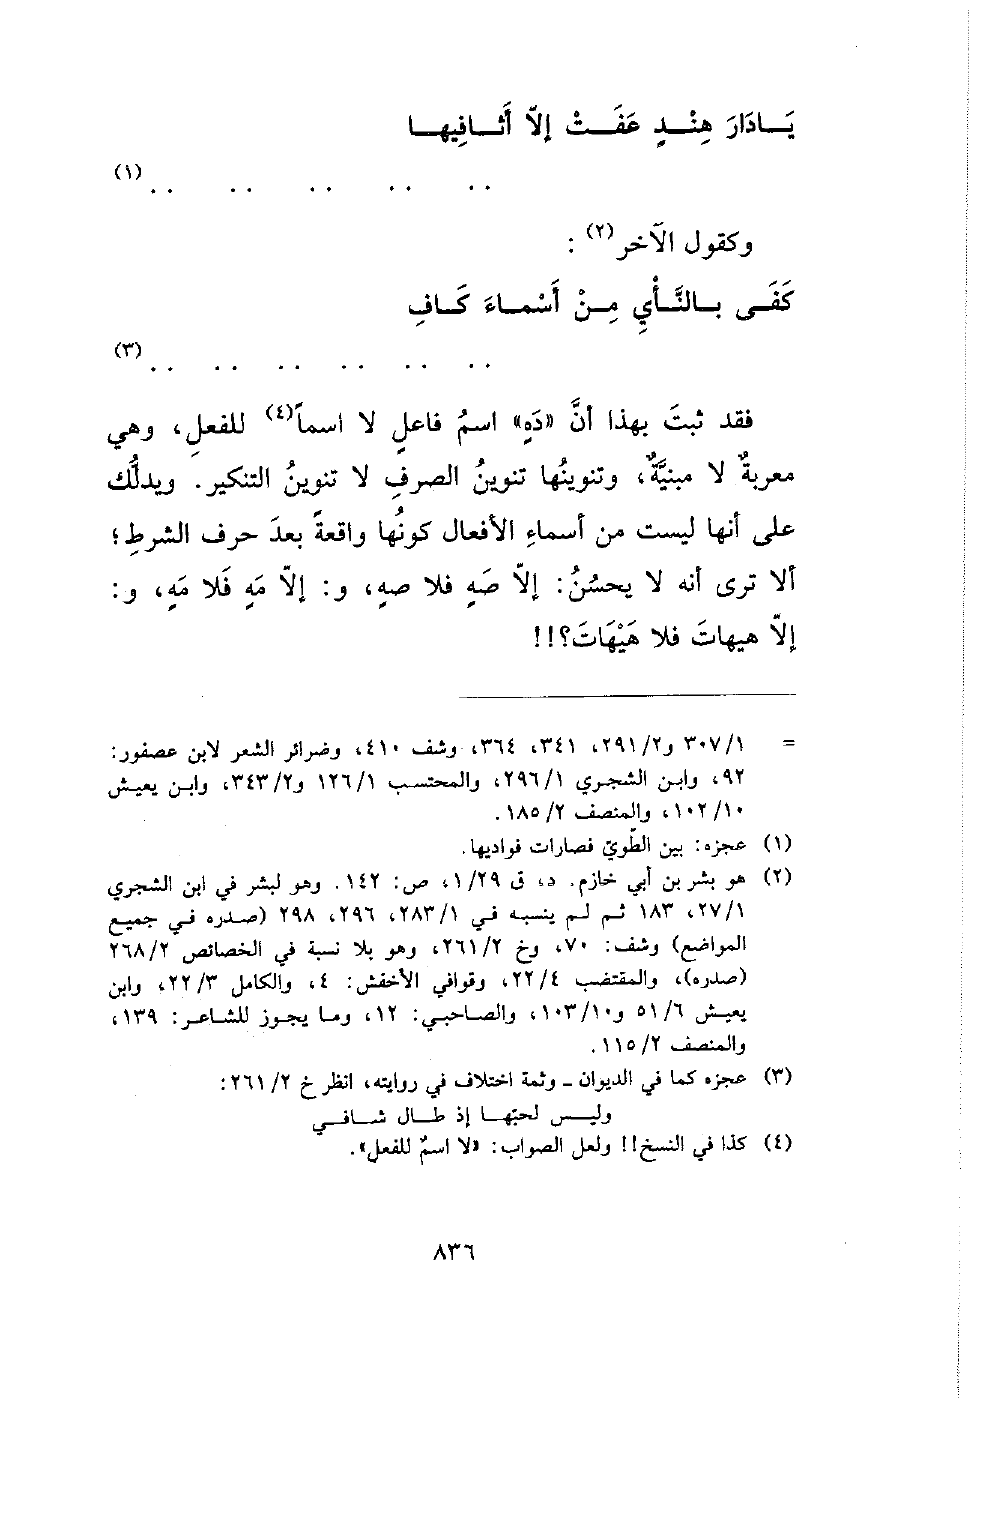 يَـادَارَ هِنْـدٍ عَفَـتْ إلاّ أَثـافِيهـا
.. .. .. .. .. (١)
وكقول الآخر(٢) :
كَفَـى بـالنَّـأْيِ مِـنْ أَسْمـاءَ كَـافِ
.. .. .. .. .. .. (٣)
فقد ثبتَ بهذا أنَّ «دَهٍ» اسمُ فاعلٍ لا اسماً(٤) للفعلِ، وهي
معربةٌ لا مبنيَّةٌ، وتنوينُها تنوينُ الصرفِ لا تنوينُ التنكير. ويدلُّك
على أنها ليست من أسماءِ الأفعال كونُها واقعةً بعدَ حرف الشرطِ؛
ألا ترى أنه لا يحسُنُ: إلاّ صَهٍ فلا صهٍ، و: إلاّ مَهٍ فَلا مَهٍ، و:
إلاّ هيهاتَ فلا هَيْهَاتَ؟!!
= ٣٠٧/١ و٢٩١/٢، ٣٤١، ٣٦٤، وشف ٤١٠، وضرائر الشعر لابن عصفور:
٩٢، وابـن الشجـري ٢٩٦/١، والمحتسـب ١٢٦/١ و٣٤٣/٢، وابـن يعيـش
١٠٢/١٠، والمنصف ١٨٥/٢.
(١) عجزه: بين الطّويّ فصارات فواديها.
(٢) هو بشر بن أبي خازم. د، ق ١/٢٩، ص: ١٤٢. وهو لبشر في ابن الشجري
٢٧/١، ١٨٣ ثـم لـم ينسبـه فـي ٢٨٣/١، ٢٩٦، ٢٩٨ (صـدره فـي جميـع
المواضع) وشف: ٧٠، وخ ٢٦١/٢، وهو بلا نسبة في الخصائص ٢٦٨/٢
(صدره)، والمقتضب ٢٢/٤، وقوافي الأخفش: ٤، والكامل ٢٢/٣، وابن
يعيـش ٥١/٦ و١٠٣/١٠، والصـاحبـي: ١٢، ومـا يجـوز للشـاعـر: ١٣٩،
والمنصف ١١٥/٢.
(٣) عجزه كما في الديوان ـ وثمة اختلاف في روايته، انظر خ ٢٦١/٢:
وليـس لحبّهـا إذ طـال شـافـي
(٤) كذا في النسخ!! ولعل الصواب: «لا اسمٌ للفعل».
٨٣٦